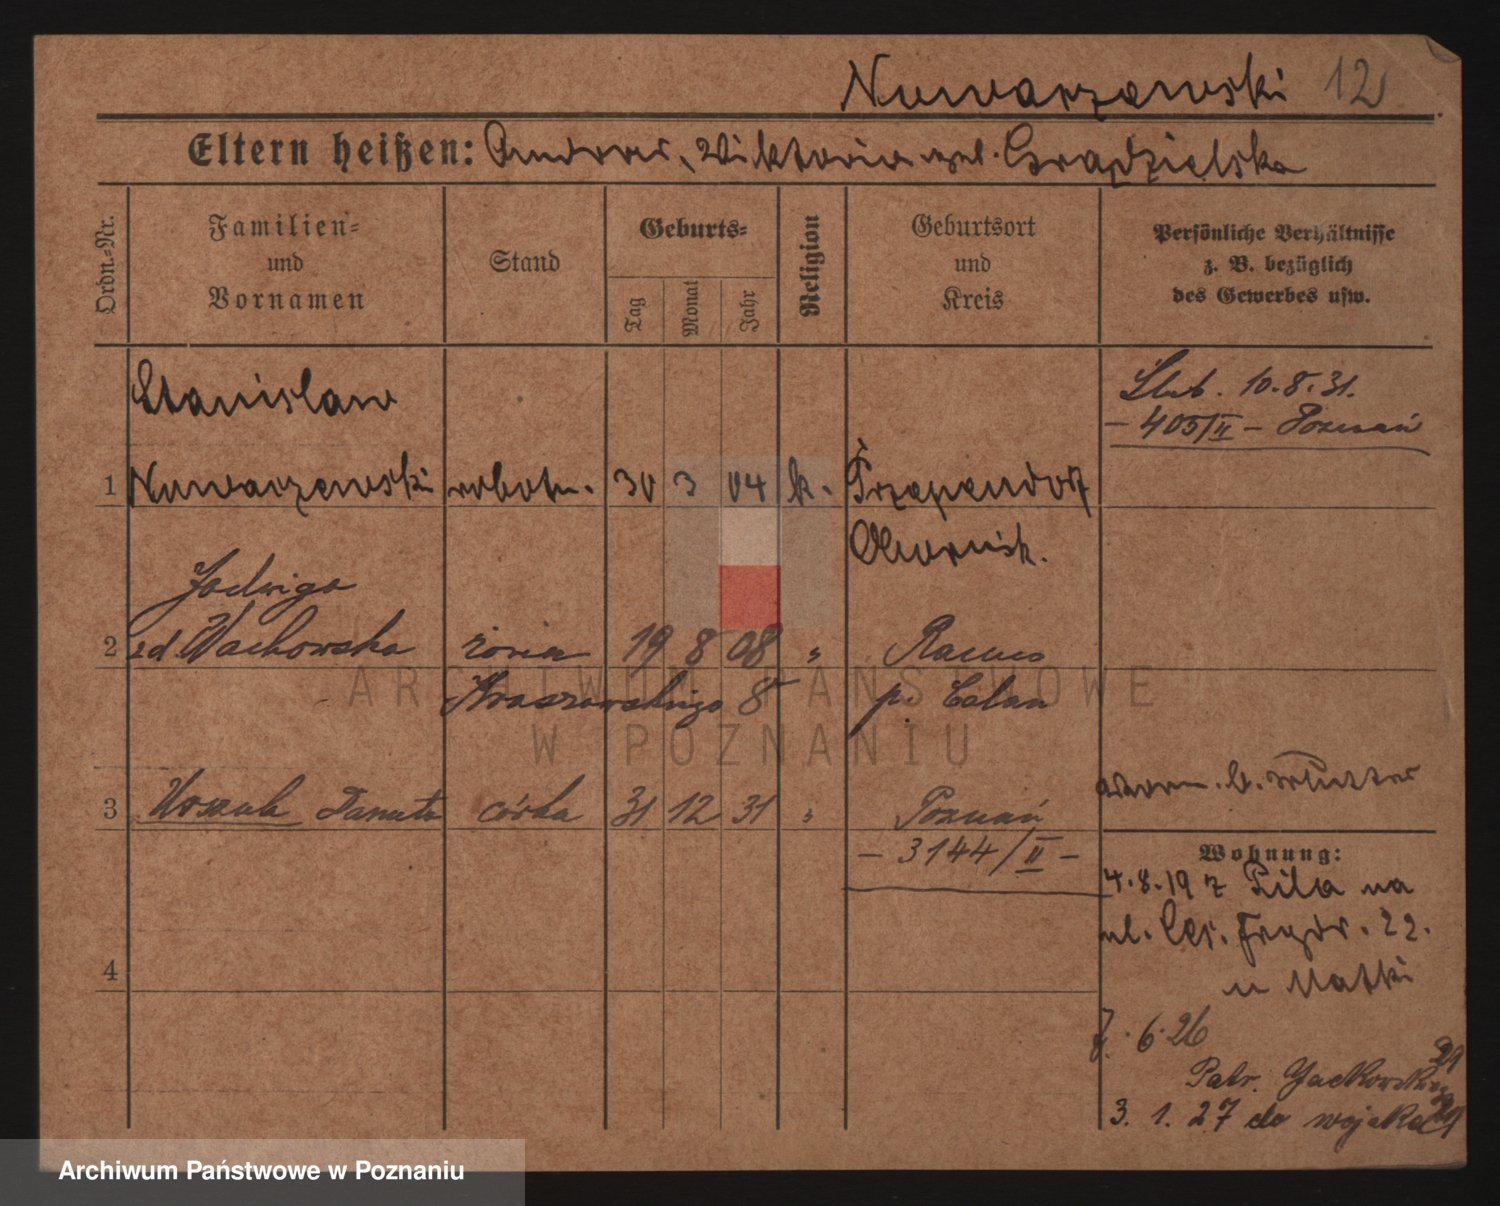 Nowarzewski 12
Eltern heißen: Andrzej, Wiktoria Grądzielska
Ordn.-Nr.
Familien-
und
Vornamen
Stand
Geburts-
Tag
Monat
Jahr
Religion
Geburtsort
und
Kreis
Persönliche Verhältnisse
z. B. bezüglich
des Gewerbes usw.
Stanisław
Ślub. 10.8.31.
- 405/II - Poznań
1 Nowarzewski robotn. 30 3 04 k.
Obornik.
Jadwiga
2 zd Wachowska żona 19 8 08 "
Kraszewskiego 8
3 Urszula Danuta córka 31 12 31 " Poznań
- 3144/II -
Wohnung:
4.8.19 z Piła na
ul. 22.
u Matki
4
7.6.26
Patr. Jackowskiego 29
3.1.27 do wojska
ARCHIWUM PAŃSTWOWE
W POZNANIU
Archiwum Państwowe w Poznaniu